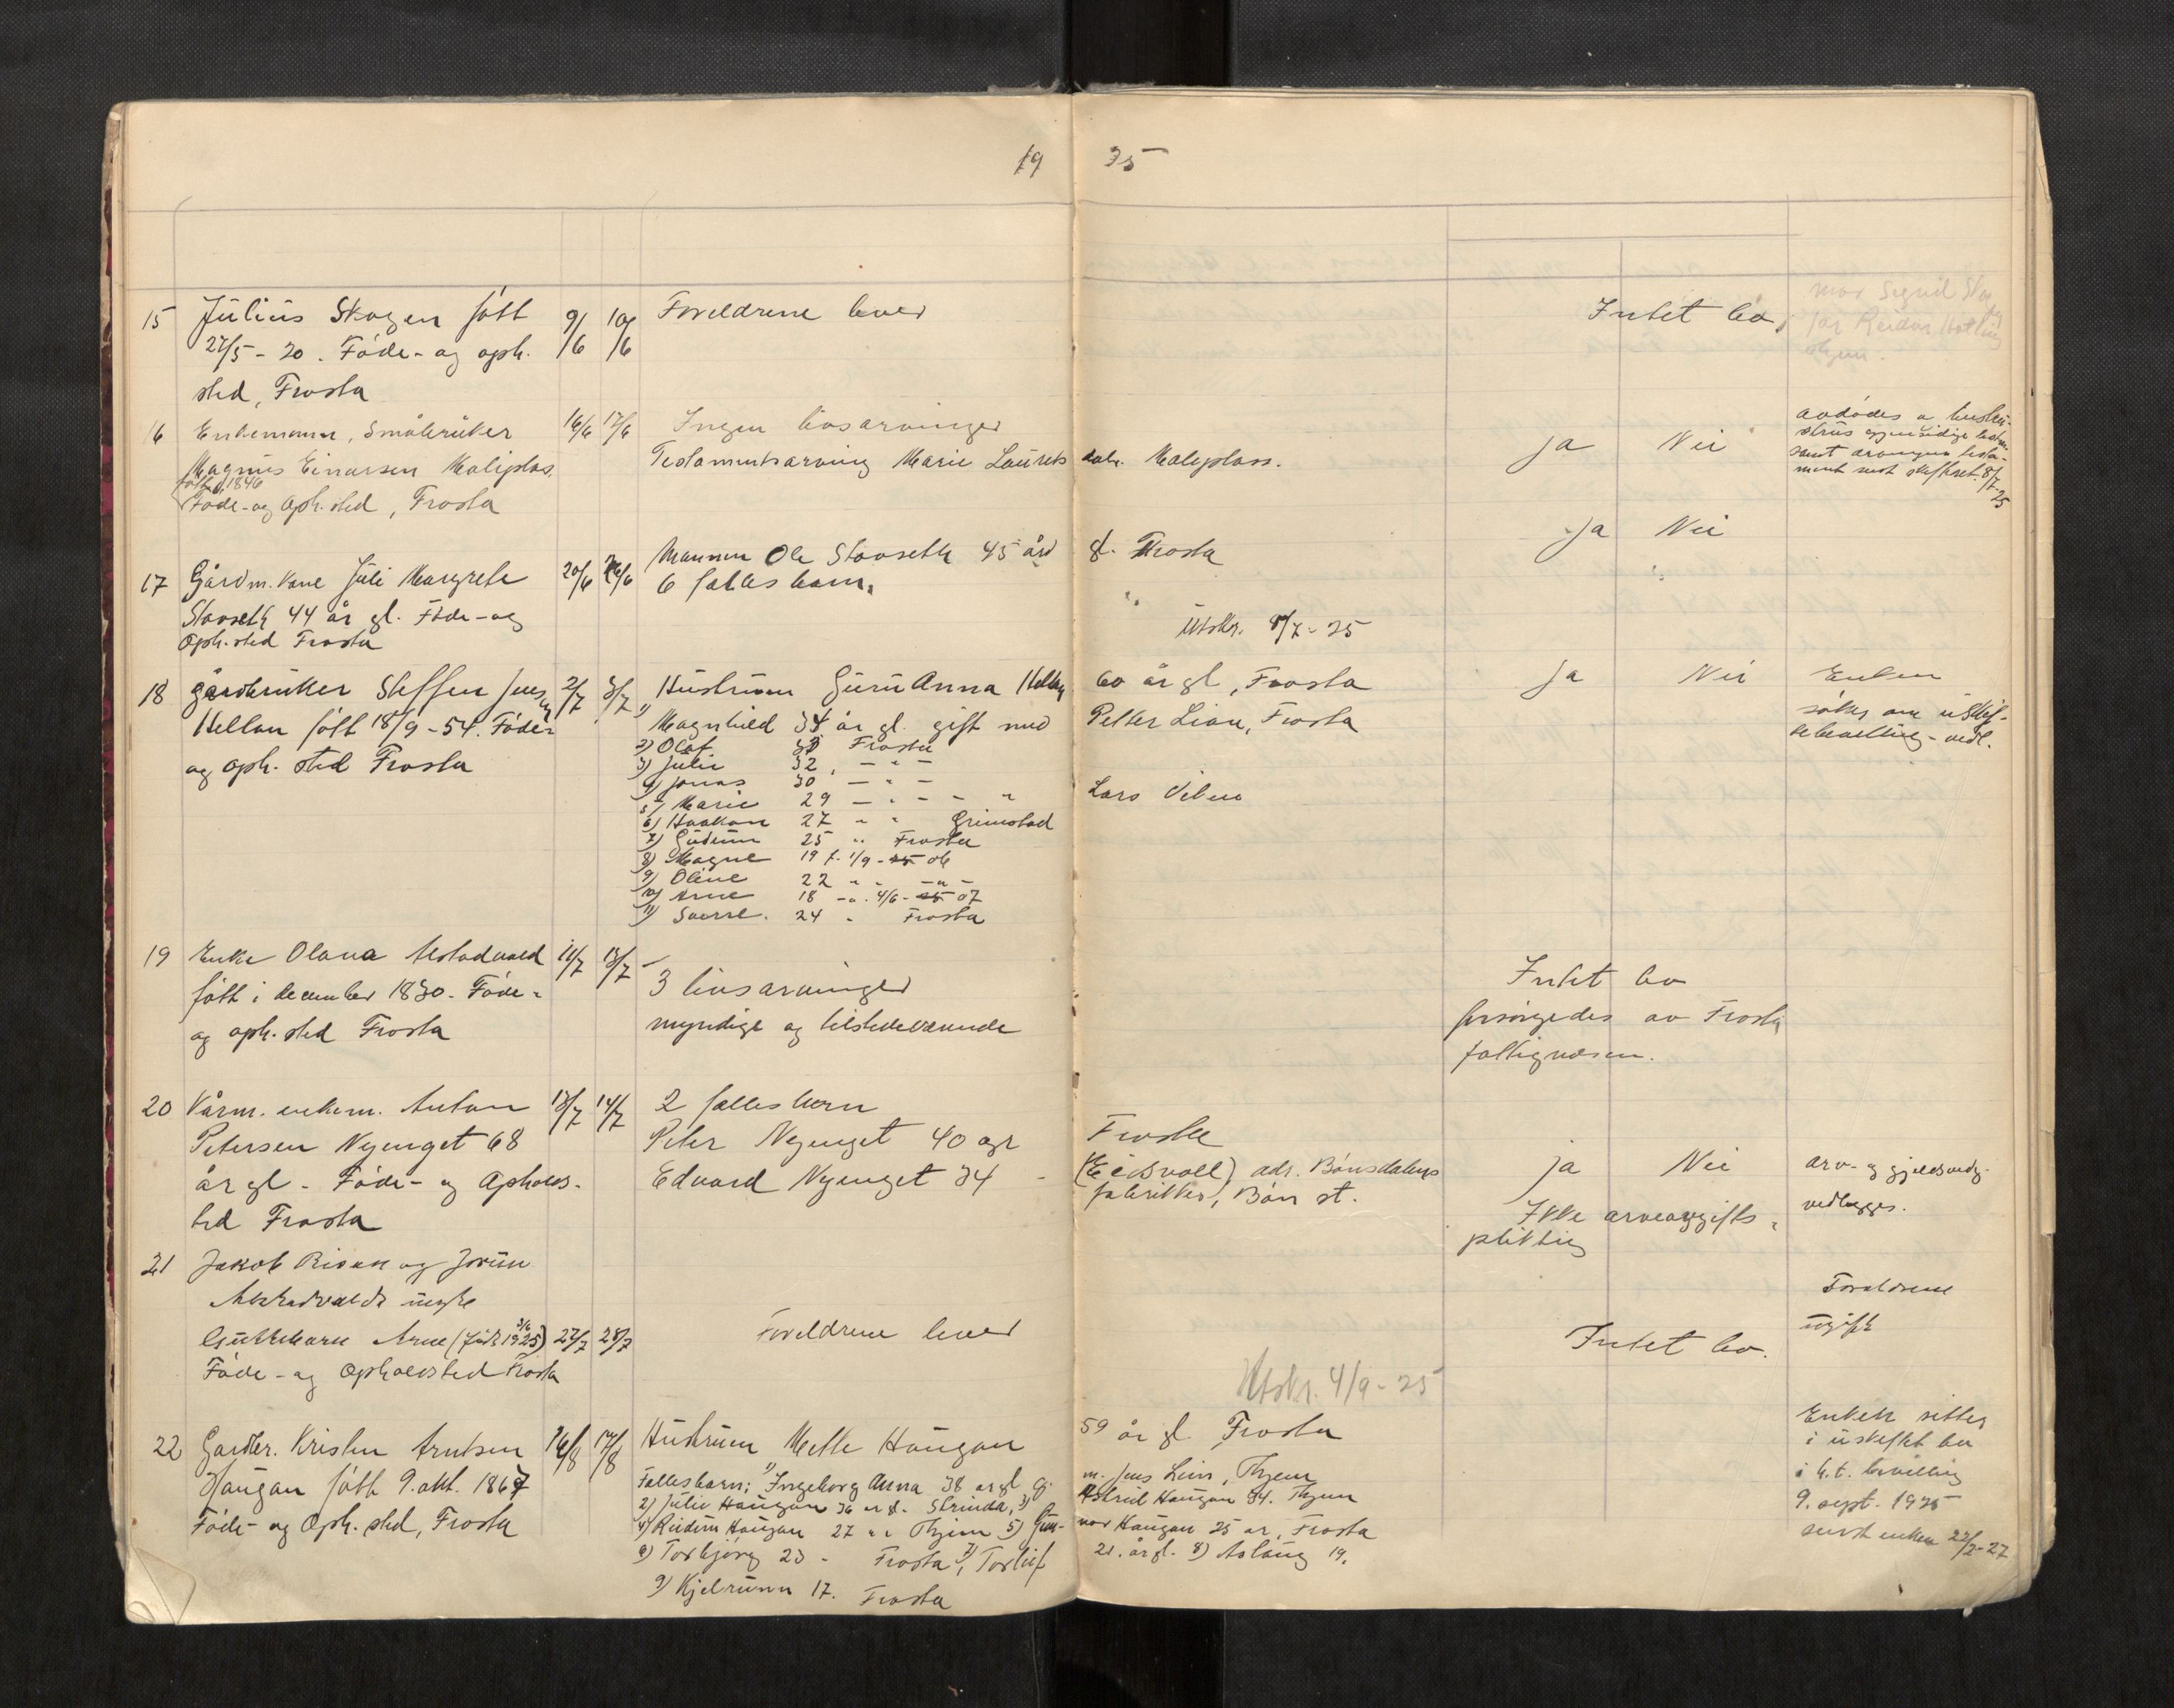 19 25
15 Julius Skogen født 9/6 10/6 Foreldrene lever Intet bo.
27/5 - 20. Føde- og oph.
sted, Frosta
mor Sigrid
far Reidar
16 Enkemann, Småbruker 16/6 17/6 Ingen livsarvinger
Magnus Einarsen Maliplas, Testamentsarving Marie Laurets datr. Maliplass. ja Nei
født 1846
Føde- og Oph. sted, Frosta
avdødes o hustru-
strus gjensidige
samt arvingens testa-
ment sendt skifteret. 8/7-25
17 Gårdm. kone Juli Margrete 20/6 26/6 Mannen Ole Stavseth 45 år gl. Frosta ja Nei
Stavseth 44 år gl. Føde- og 6 felles barn.
Oph. sted Frosta
Utskr. 8/7 - 25
18 Gårdbruker Steffen Jens 2/7 3/7 Hustruen Guru Anna Hellan 60 år gl, Frosta ja Nei Enken
Hellan født 18/9 - 54. Føde-
og oph. sted Frosta
1) Magnhild 34 år gl. gift med Petter Lian, Frosta
2) Olaf Frosta
3) Julie 32 " - " -
4) Jonas 30 - " -
5) Marie 29 - " - - " Lars Viken
6) Haakon 27 " " Grimstad
7) Gudrun 25 " Frosta
8) Magne 19 f. 1/9 - 25 06
9) Oline 22 " - " -
10) Arne 18 - " . 4/6 - 25 07
11) Sverre. 24 " Frosta
søker om uskif-
tebevilling - vedl.
19 Enke Olava Alstadvald 11/7 13/7
født i december 1830. Føde-
og oph. sted Frosta
3 livsarvinger
myndige og tilstedeværende
Intet bo
forsørgedes av Frosta
fattigvæsen.
20 Kårm. enkem. Anton 13/7 14/7 2 felles barn
Petersen Nyenget 68
år gl - Føde- og Opholds-
sted Frosta
Peter Nyenget 40 år Frosta
Edvard Nyenget 34 - (Eidsvoll) adr. Bönsdalens
fabrikker, Bøn st.
ja Nei
Ikke arveavgifts-
pliktig
arv- og gjeldsvedg.
vedlegges.
21 Jakob Risan og Jorun
Alstadvalds
Guttebarn Arne (født 3/6 1925) 27/7 28/7 Foreldrene lever Intet bo.
Føde- og Opholdsted Frosta
Foreldrene
ugift
Utskr. 4/9 - 25
22 Gardbr. Kristen Arntsen 16/8 17/8 Hustruen Mette Haugan 59 år gl. Frosta
Haugan født 9. okt. 1867
Føde- og Oph. sted, Frosta
Fellesbarn: 1) Ingeborg Anna 38 år gl g. m. Jens Lein, Thjem
2) Julie Haugan 36 år gl. Strinda, 3) Astrid Haugan 34. Thjem
4) Reidun Haugan 27 år Thjem 5) Gun- nor Haugan 25 år, Frosta
6) Torbjörg 23 - Frosta, 7) Torleif 21. år gl. 8) Aslaug 19.
9) Kjelrunn 17. Frosta
Enken sitter
i uskiftet bo
i h.t. bevilling
9. sept. - 1925
sendt enken 22/2-27